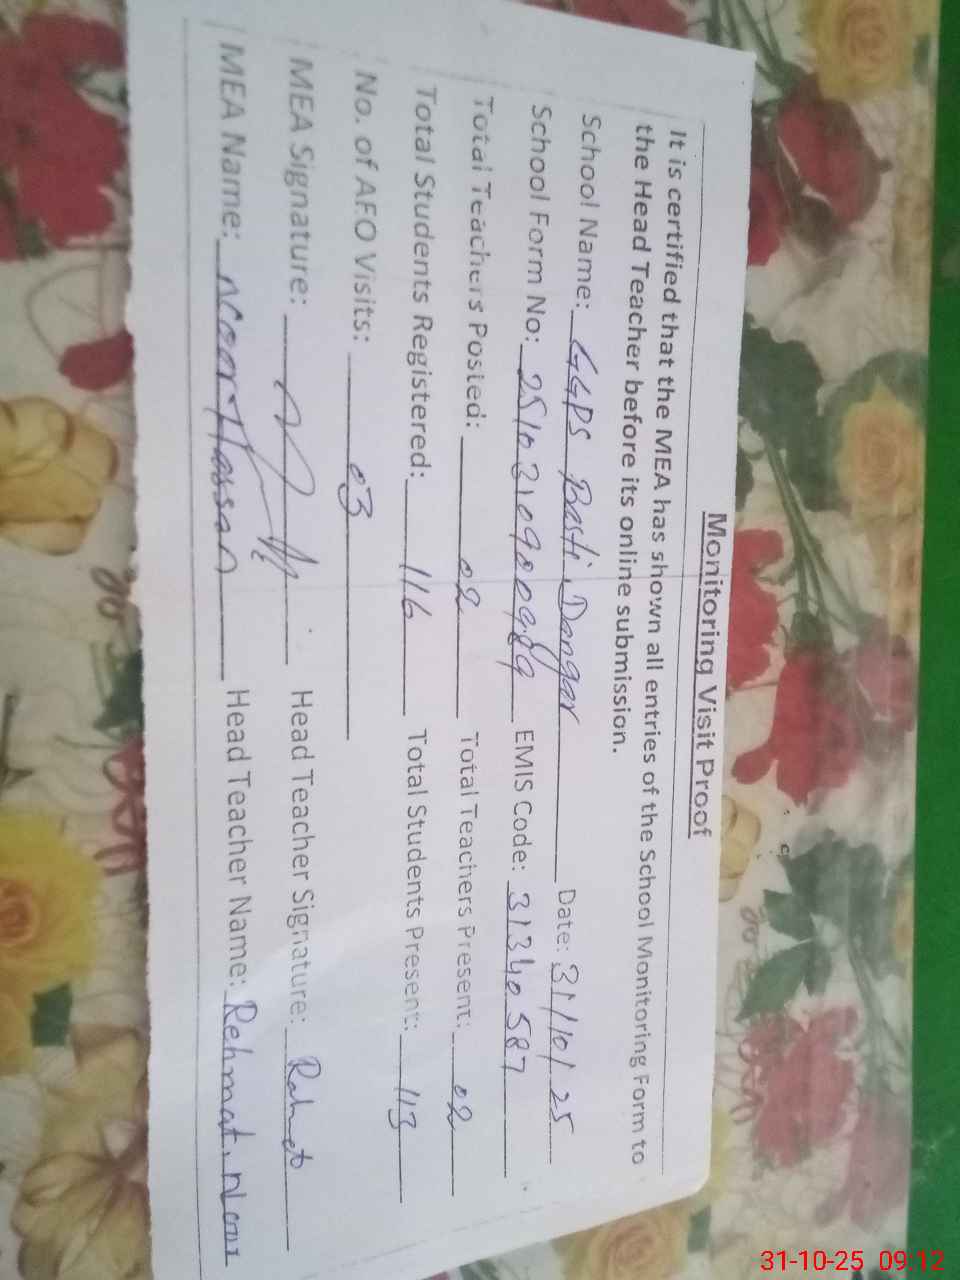 Monitoring Visit Proof
It is certified that the MEA has shown all entries of the School Monitoring Form to
the Head Teacher before its online submission.
School Name: GGPS Basti Dangar Date: 31/10/25
School Form No: 2510310900989 EMIS Code: 31340587
Total Teachers Posted: 02 Total Teachers Present: 02
Total Students Registered: 116 Total Students Present: 113
No. of AEO Visits: 03
MEA Signature: Head Teacher Signature:
MEA Name: Hassan Head Teacher Name: Rehmat
31-10-25 09:12